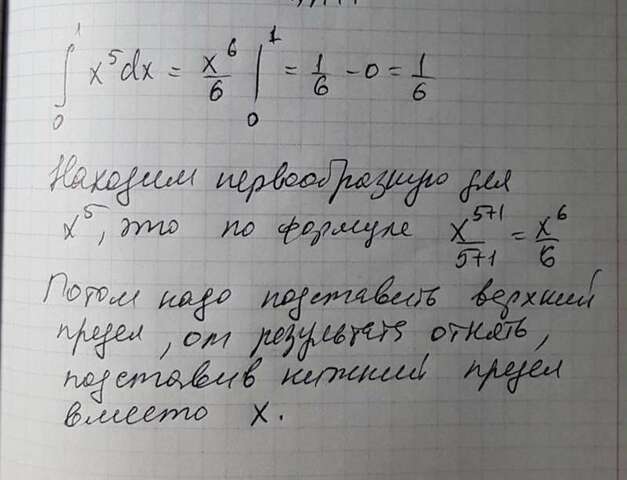 ∫₀¹ x⁵dx = x⁶/6 |₀¹ = 1/6 - 0 = 1/6
Находим первообразную для
x⁵, это по формуле x⁵⁺¹/5+1 = x⁶/6
Потом надо подставить верхний
предел, от результата отнять,
подставив нижний предел
вместо x.